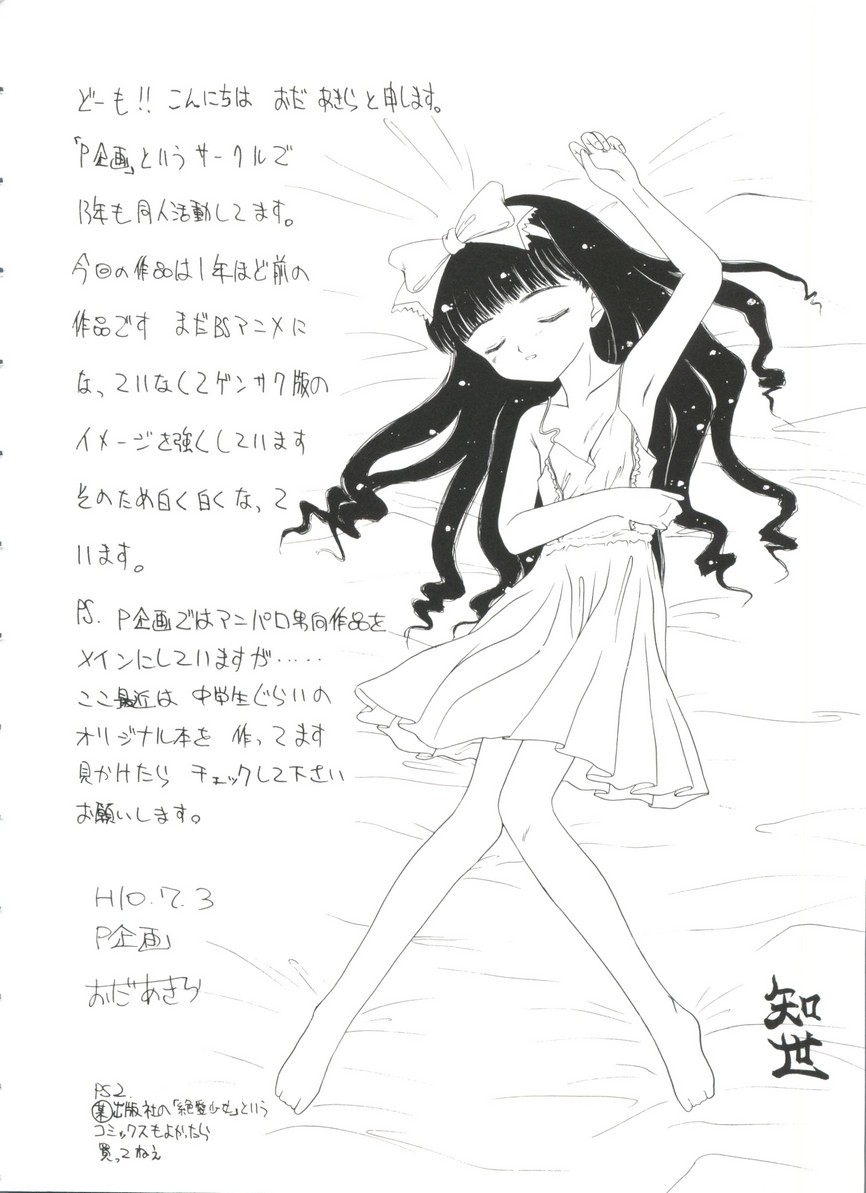 どーも!! こんにちは おだ あきらと申します。
「P企画」というサークルで
13年も同人活動してます。
今回の作品は1年ほど前の
作品です まだBSアニメに
なっていなくてゲンサク版の
イメージを強くしています
そのため白く白くなって
います。
PS. P企画ではアニパロ男向作品を
メインにしていますが……
ここ最近は 中学生ぐらいの
オリジナル本を 作ってます
見かけたら チェックして下さい
お願いします。
H10.7.3
P企画
おだあきら
知世
PS2.
某出版社の「絶愛少女」という
コミックスもよかったら
買ってねぇ